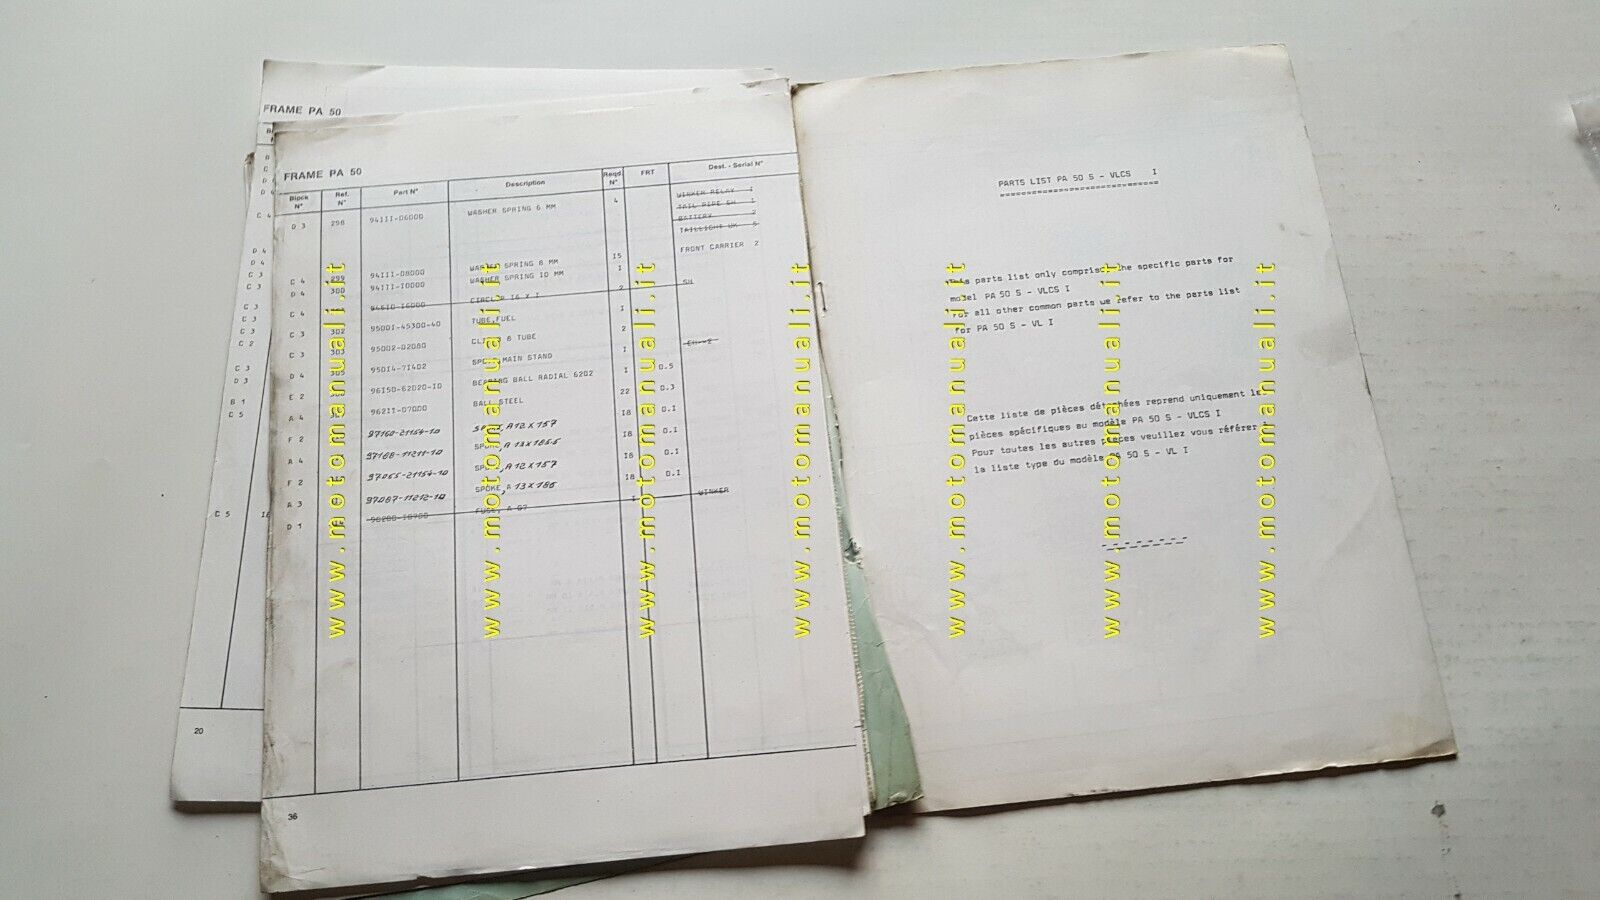 FRAME PA 50
20
FRAME PA 50
Block N° Ref. N° Part N° Description Reqd. N° FRT Dest. - Serial N°
D 3 298 94111-06000 WASHER SPRING 6 MM 4 WINKER RELAY 1
TAIL PIPE SH 1
BATTERY 2
TAILLIGHT UK 5
FRONT CARRIER 2
C 4 299 94111-08000 WASHER SPRING 8 MM 15
D 4 300 94111-10000 WASHER SPRING 10 MM 1
C 4 94510-16000 CIRCLIP 16 X 1 2 SH
C 3 302 95001-45300-40 TUBE, FUEL 1
C 3 303 95002-02080 TUBE 2
D 4 305 95014-71402 MAIN STAND 1
E 2 96150-62020-10 BEARING BALL RADIAL 6202 1 0.5
A 4 96211-07000 BALL STEEL 22 0.3
F 2 97160-21154-10 SPOKE, A 12 X 157 18 0.1
A 4 97168-11211-10 SPOKE, A 13 X 185.5 18 0.1
F 2 97065-21154-10 SPOKE, A 12 X 157 18 0.1
A 3 97087-11212-10 SPOKE, A 13 X 186 18 0.1
D 1 98200-10700 FUSE, A 07 1 WINKER
36
PARTS LIST PA 50 S - VLCS I
This parts list only comprises the specific parts for
model PA 50 S - VLCS I
For all other common parts we refer to the parts list
for PA 50 S - VL I
Cette liste de pièces détachées reprend uniquement les
pièces spécifiques au modèle PA 50 S - VLCS I
Pour toutes les autres pièces veuillez vous référer à
la liste type du modèle PA 50 S - VL I
www.motomanuali.it
www.motomanuali.it
www.motomanuali.it
www.motomanuali.it
www.motomanuali.it
www.motomanuali.it
www.motomanuali.it